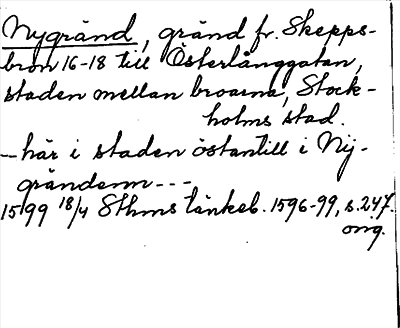 Nygränd, gränd fr. Skepps-
bron 16-18 till Österlånggatan,
staden mellan broarna, Stock-
holms stad.
— här i staden östantill i Ny-
grändenn ---
1599 18/4 Sthms tänkeb. 1596-99, s. 247.
orig.